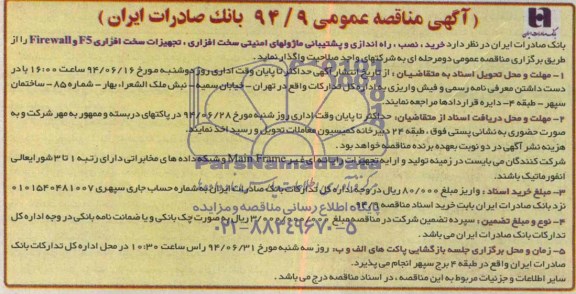 ( آگهی مناقصه عمومی ۹۴/۹ بانک صادرات ایران )
بانک صادرات ایران در نظر دارد خرید ، نصب ، راه اندازی و پشتیبانی ماژولهای امنیتی سخت افزاری ، تجهیزات سخت افزاری F5 و Firewall را از
طریق برگزاری مناقصه عمومی دومرحله ای به شرکتهای واجد صلاحیت واگذار نماید.
۱- مهلت و محل تحویل اسناد به متقاضیان : از تاریخ انتشار آگهی حداکثر تا پایان وقت اداری روز دوشنبه مورخ ۹۴/۰۶/۱۶ ساعت ۱۶:۰۰ با در
دست داشتن معرفی نامه رسمی و فیش واریزی به اداره کل تدارکات واقع در تهران - خیابان سمیه - نبش ملک الشعراء بهار - شماره ۸۵ - ساختمان
سپهر - طبقه ۴ - دایره قراردادها مراجعه نمایند.
۲- مهلت و محل دریافت اسناد از متقاضیان: حداکثر تا پایان وقت اداری روز شنبه مورخ ۹۴/۰۶/۲۸ در پاکتهای دربسته و ممهور به مهر شرکت و به
صورت حضوری به نشانی پستی فوق، طبقه ۲۴ دبیرخانه کمیسیون معاملات تحویل و رسید اخذ نمایند.
هزینه نشر آگهی در دو نوبت بعهده برنده مناقصه خواهد بود.
شرکت کنندگان می بایست در زمینه تولید و ارایه تجهیزات رایانه ای غیر Main Frame و شبکه داده های مخابراتی دارای رتبه ۱ تا ۳ شورایعالی
انفورماتیک باشند.
۳- مبلغ خرید اسناد : واریز مبلغ ۸۰۰/۰۰۰ ریال در وجه اداره کل تدارکات بانک صادرات ایران به شماره حساب جاری سپهری ۰۱۰۱۵۴۰۴۸۱۰۰۷
نزد بانک صادرات ایران بابت خرید اسناد مناقصه ۹۴/۹
۴- نوع و مبلغ تضمین : سپرده تضمین شرکت در مناقصه مبلغ ۳/۰۰۰/۰۰۰/۰۰۰ ریال به صورت چک بانکی و یا ضمانت نامه بانکی در وجه اداره کل
تدارکات بانک صادرات ایران می باشد.
۵- زمان و محل برگزاری جلسه بازگشایی پاکت های الف و ب: روز سه شنبه مورخ ۹۴/۰۶/۳۱ راس ساعت ۱۰:۳۰ در محل اداره کل تدارکات بانک
صادرات ایران واقع در طبقه ۴ برج سپهر انجام می پذیرد.
سایر اطلاعات و جزئیات مربوط به این مناقصه ، در اسناد مناقصه درج می باشد .
ParsNamadData
پایگاه اطلاع رسانی مناقصه و مزایده
۰۲۱-۸۸۳۴۹۶۷۰-۵